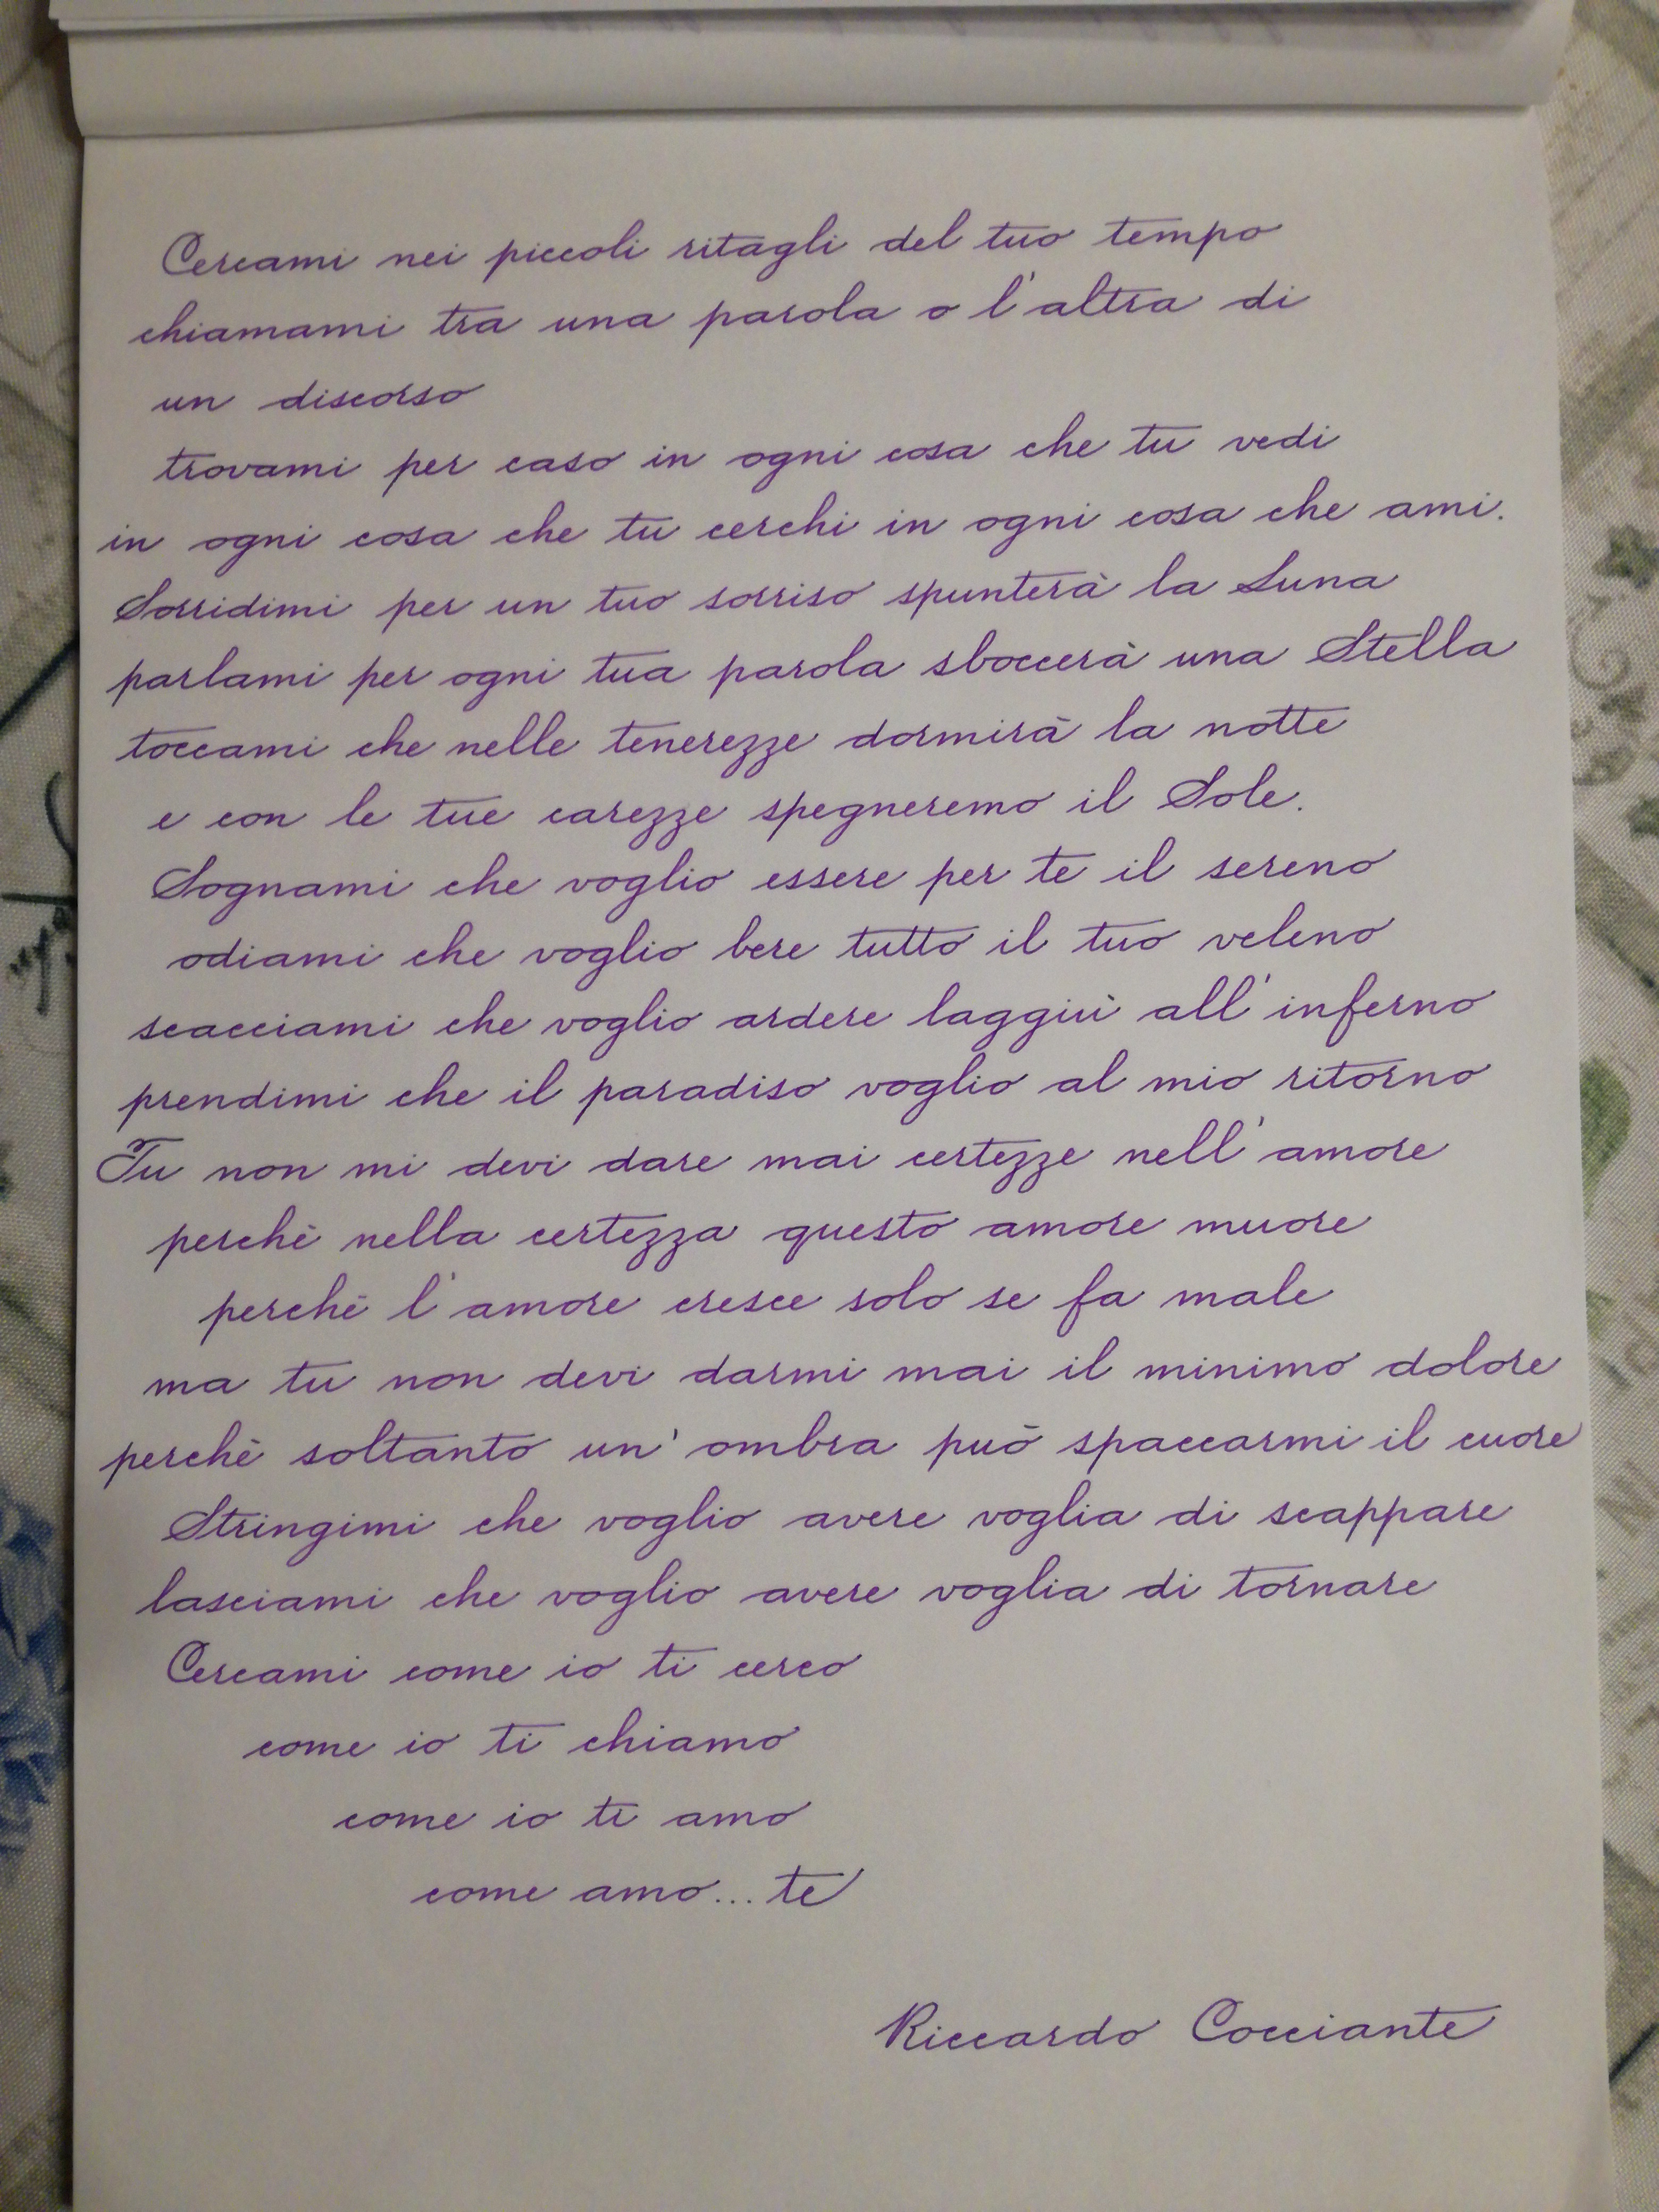 Cercami nei piccoli ritagli del tuo tempo
chiamami tra una parola o l'altra di
un discorso
trovami per caso in ogni cosa che tu vedi
in ogni cosa che tu cerchi in ogni cosa che ami.
Sorridimi per un tuo sorriso spunterà la Luna
parlami per ogni tua parola sboccerà una Stella
toccami che nelle tenerezze dormirà la notte
e con le tue carezze spegneremo il Sole.
Sognami che voglio essere per te il sereno
odiami che voglio bere tutto il tuo veleno
scacciami che voglio ardere laggiù all'inferno
prendimi che il paradiso voglio al mio ritorno
Tu non mi devi dare mai certezze nell'amore
perchè nella certezza questo amore muore
perchè l'amore cresce solo se fa male
ma tu non devi darmi mai il minimo dolore
perchè soltanto un'ombra può spaccarmi il cuore
Stringimi che voglio avere voglia di scappare
lasciami che voglio avere voglia di tornare
Cercami come io ti cerco
come io ti chiamo
come io ti amo
come amo... te
Riccardo Cocciante